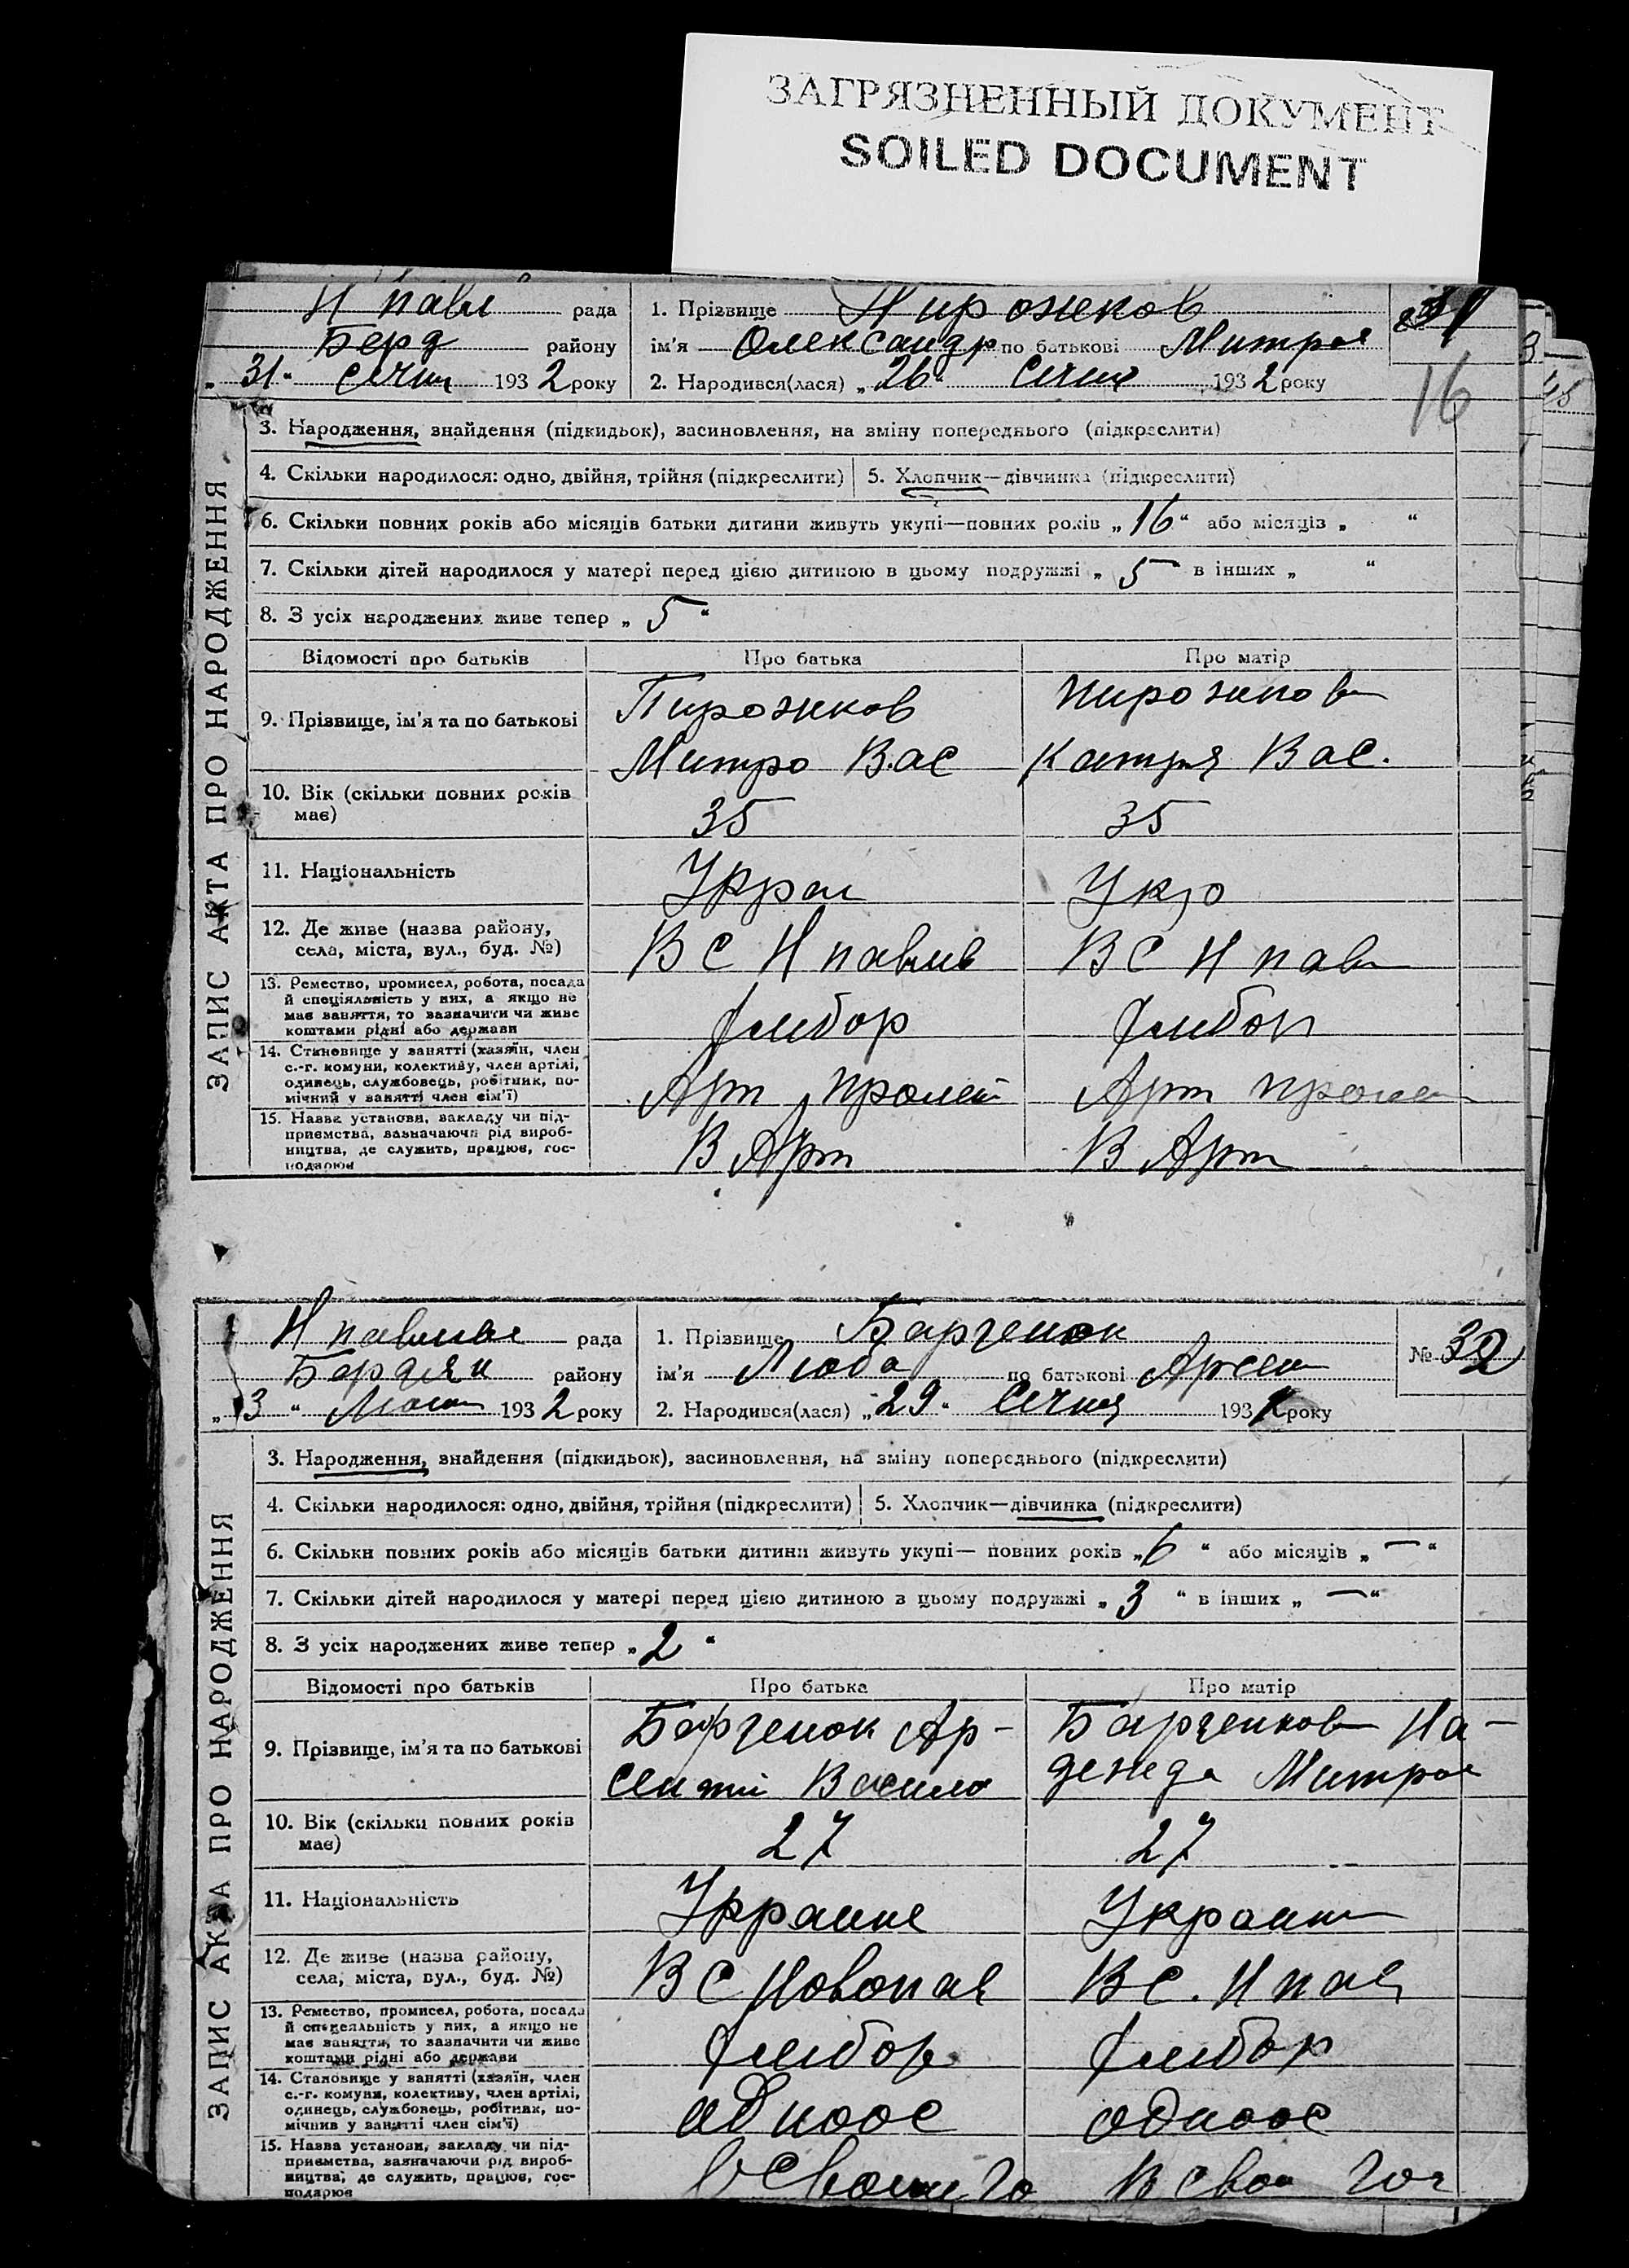 ЗАГРЯЗНЕННЫЙ ДОКУМЕНТ
SOILED DOCUMENT
Н павл рада
Берд району
„31“ січня 1932 року
1. Прізвище Пирожков
ім'я Олександр по батькові Митров
2. Народився(лася) „26“ Січня 1932 року
31
16
ЗАПИС АКТА ПРО НАРОДЖЕННЯ
3. Народження, знайдення (підкидьок), засиновлення, на зміну попереднього (підкреслити)
4. Скільки народилося: одно, двійня, трійня (підкреслити) 5. Хлопчик—дівчинка (підкреслити)
6. Скільки повних років або місяців батьки дитини живуть укупі—повних років „16“ або місяців „ “
7. Скільки дітей народилося у матері перед цією дитиною в цьому подружжі „5 в інших „ “
8. З усіх народжених живе тепер „5“
Відомості про батьків Про батька Про матір
9. Прізвище, ім'я та по батькові
Пирожков
Митро Вас
Пирожков
Катря Вас.
10. Вік (скільки повних років має)
35 35
11. Національність
Украі Укр
12. Де живе (назва району, села, міста, вул., буд. №)
В С Н павлів В С Н пав
13. Ремество, промисел, робота, посада й спеціяльність у них, а якщо не має заняття, то зазначити чи живе коштами рідні або держави
хлибор хлибор
14. Становище у занятті (хазяїн, член с.-г. комуни, колективу, член артілі, одинець, службовець, робітник, помічний у занятті член сім'ї)
Арт пролет Арт пролет
15. Назва установи, закладу чи підприємства, зазначаючи рід виробництва, де служить, працює, господарює
В Арт В Арт
Н павлівс рада
Бердян району
„3“ Лют 1932 року
1. Прізвище Барченок
ім'я Люба по батькові Арсен
2. Народився(лася) „29“ Січня 193 року
№ 32
ЗАПИС АКТА ПРО НАРОДЖЕННЯ
3. Народження, знайдення (підкидьок), засиновлення, на зміну попереднього (підкреслити)
4. Скільки народилося: одно, двійня, трійня (підкреслити) 5. Хлопчик—дівчинка (підкреслити)
6. Скільки повних років або місяців батьки дитини живуть укупі— повних років „6“ або місяців „—“
7. Скільки дітей народилося у матері перед цією дитиною в цьому подружжі „3“ в інших „—“
8. З усіх народжених живе тепер „2“
Відомості про батьків Про батька Про матір
9. Прізвище, ім'я та по батькові
Барченок Ар-
сентій Василь
Барченков На-
дежда Митров
10. Вік (скільки повних років має)
27 27
11. Національність
Украине Украин
12. Де живе (назва району, села, міста, вул., буд. №)
В С Новопав В С. Н пав
13. Ремество, промисел, робота, посада й спеціяльність у них, а якщо не має заняття, то зазначити чи живе коштами рідні або держави
хлибор хлибор
14. Становище у занятті (хазяїн, член с.-г. комуни, колективу, член артілі, одинець, службовець, робітник, помічник у занятті член сім'ї)
одноос одноос
15. Назва установи, закладу чи підприємства, зазначаючи рід виробництва, де служить, працює, господарює
в Своим го В свои гос